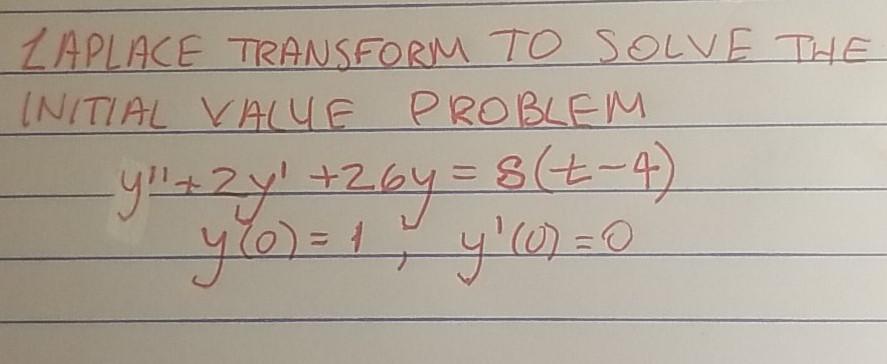 LAPLACE TRANSFORM TO SOLVE THE
INITIAL VALUE PROBLEM
y''+2y' +26y = δ(t-4)
y(0) = 1 , y'(0) = 0